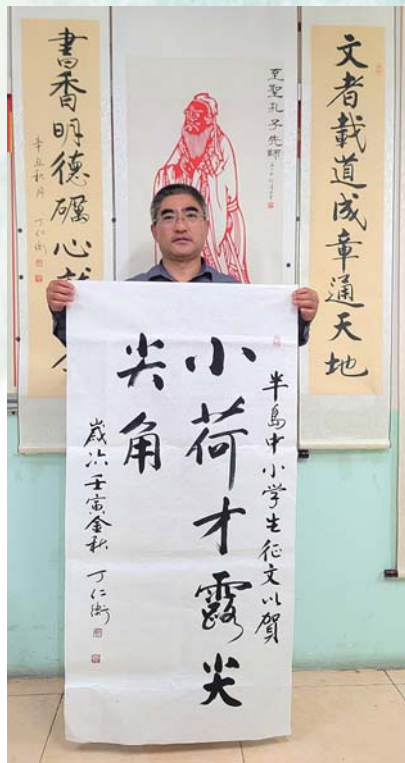 文者載道成章通天地
至聖孔子先師
書香明德礪心
辛丑秋月 丁仁衛
半島中小学生征文以賀
小荷才露尖
尖角
歲次壬寅金秋 丁仁衛